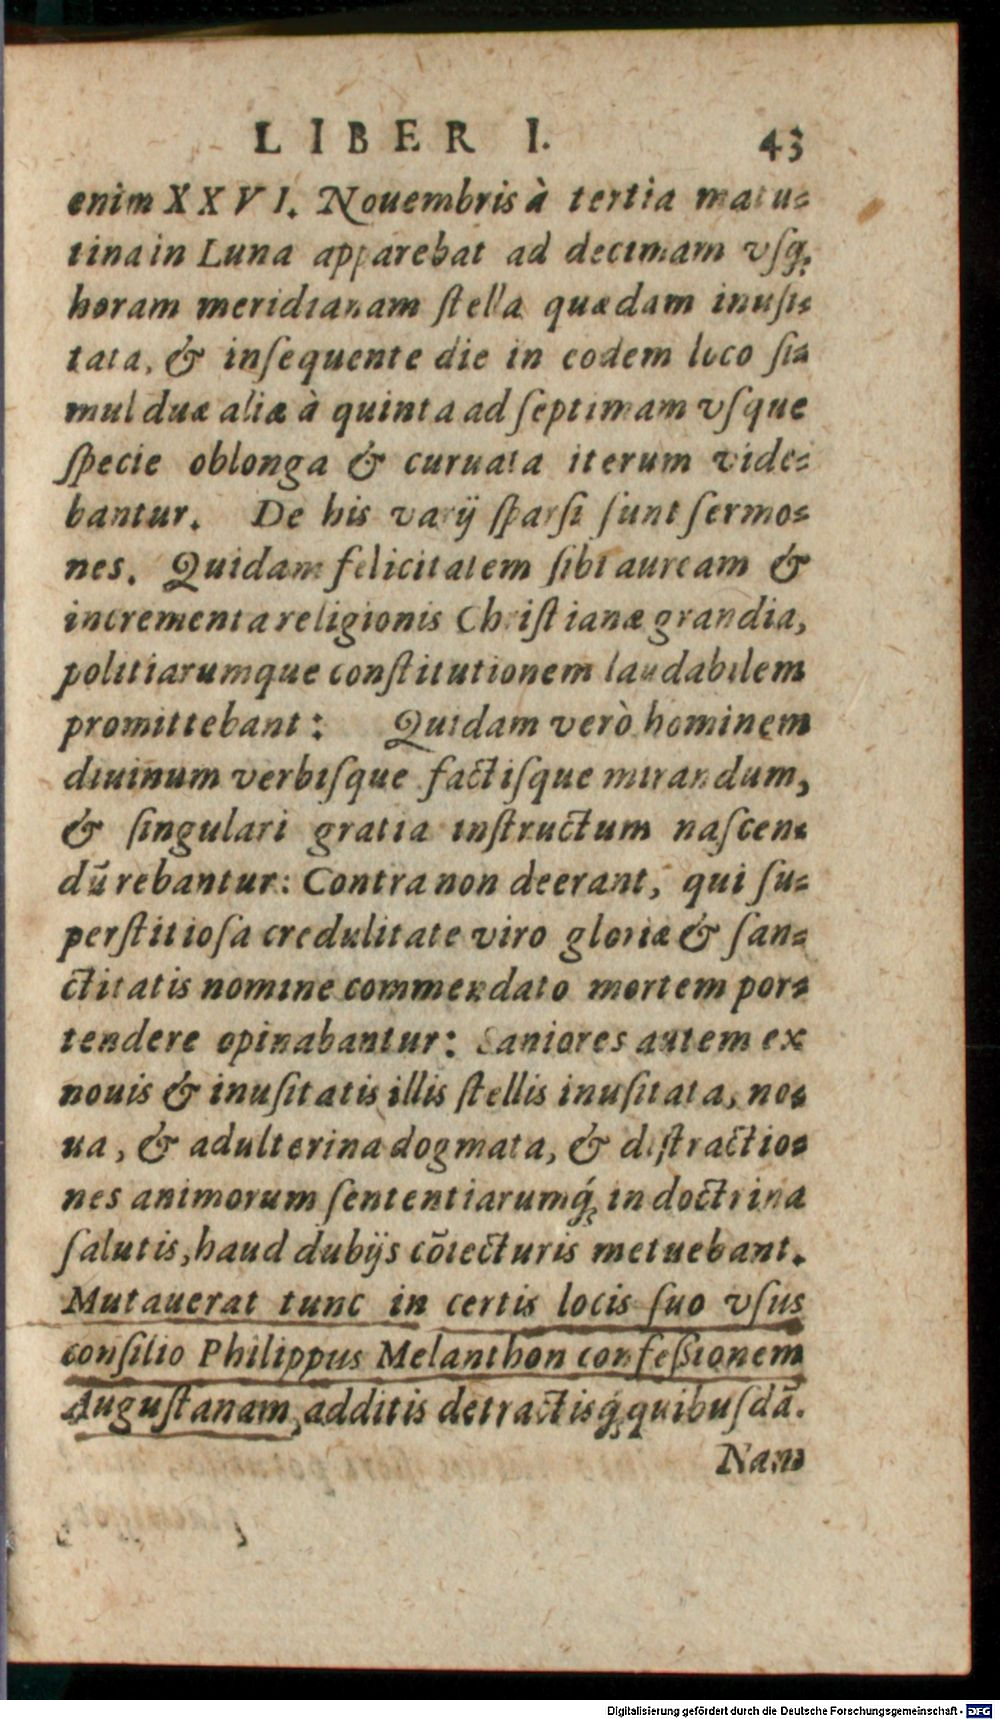 LIBER I. 43
enim XXVI. Nouembris à tertia matu=
tina in Luna apparebat ad decimam vſq;
horam meridianam ſtella quædam inuſi=
tata, & inſequente die in eodem loco ſi=
mul duæ aliæ à quinta ad ſeptimam vſque
ſpecie oblonga & curuata iterum vide=
bantur. De his varij ſparſi ſunt ſermo=
nes. Quidam felicitatem ſibi auream &
incrementa religionis Chriſtianæ grandia,
politiarumque conſtitutionem laudabilem
promittebant: Quidam verò hominem
diuinum verbiſque factiſque mirandum,
& ſingulari gratia inſtructum naſcen=
dũ rebantur: Contra non deerant, qui ſu=
perſtitioſa credulitate viro gloriæ & ſan=
ctitatis nomine commendato mortem por=
tendere opinabantur: Saniores autem ex
nouis & inuſitatis illis ſtellis inuſitata, no=
ua, & adulterina dogmata, & diſtractio=
nes animorum ſententiarumq́; in doctrina
ſalutis, haud dubijs cõiecturis metuebant.
Mutauerat tunc in certis locis ſuo vſus
conſilio Philippus Melanthon confeßionem
Auguſtanam, additis detractisq́; quibuſdã.
Nam
Digitalisierung gefördert durch die Deutsche Forschungsgemeinschaft - DFG